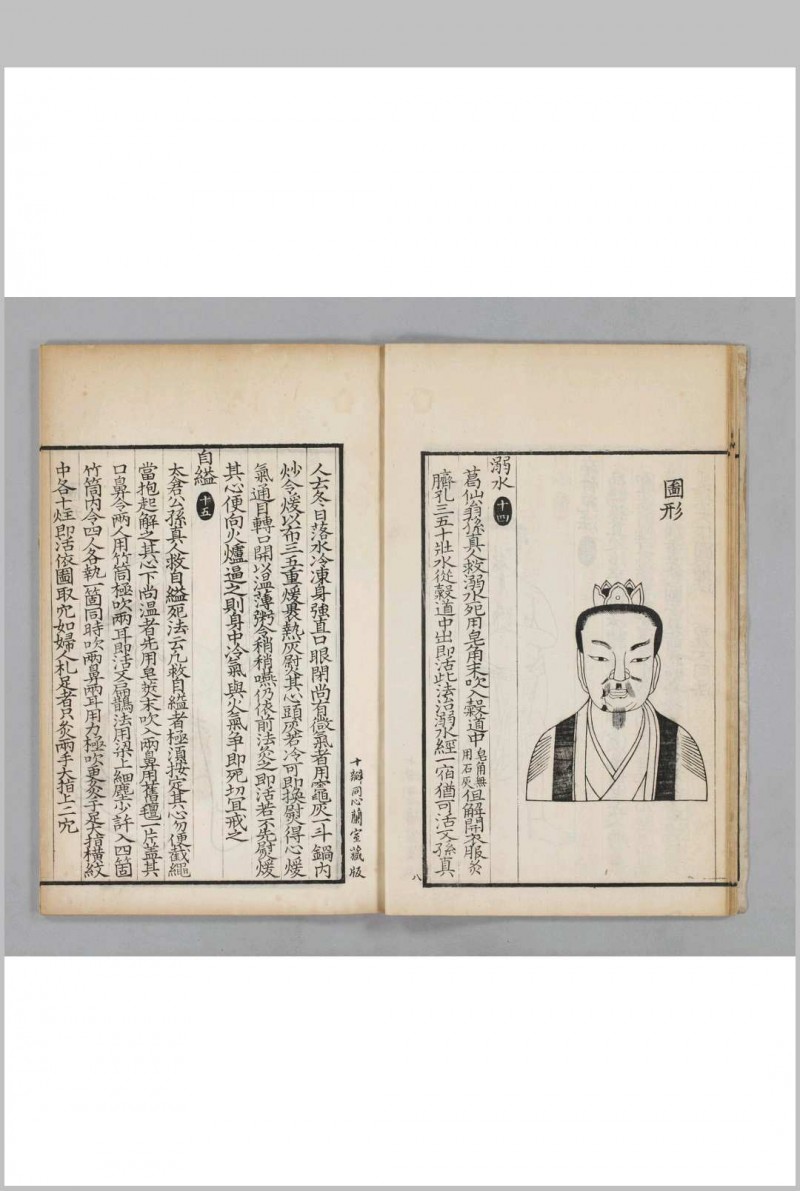 圖形
溺水 十四
葛仙翁孫真人救溺水死用皂角末吹入穀道中皂角無用石灰但解開衣服灸
臍孔三五十壯水從穀道中出即活此法治溺水經一宿猶可活又孫真
八
十瓣同心蘭室藏版
人云冬日落水冷凍身強直口眼閉尚有微氣者用竈灰一斗鍋內
炒令煖以布三五重煖裹熱灰熨其心頭灰若冷可即換熨得心煖
氣通目轉口開以溫薄粥令稍稍嚥仍依前法灸之即活若不先熨煖
其心便向火爐逼之則身中冷氣與火氣爭即死切宜戒之
自縊 十五
太倉公孫真人救自縊死法云凡救自縊者極須按定其心勿便截繩
當抱起解之其心下尚溫者先用皂莢末吹入兩鼻用舊氊一片蓋其
口鼻令兩人用竹筒極吹兩耳即活又扁鵲法用梁上細塵少許入四箇
竹筒內令四人各執一箇同時吹兩鼻兩耳用力極吹更灸手足大指橫紋
中各七炷即活依圖取穴如婦人札足者只灸兩手大指上二穴